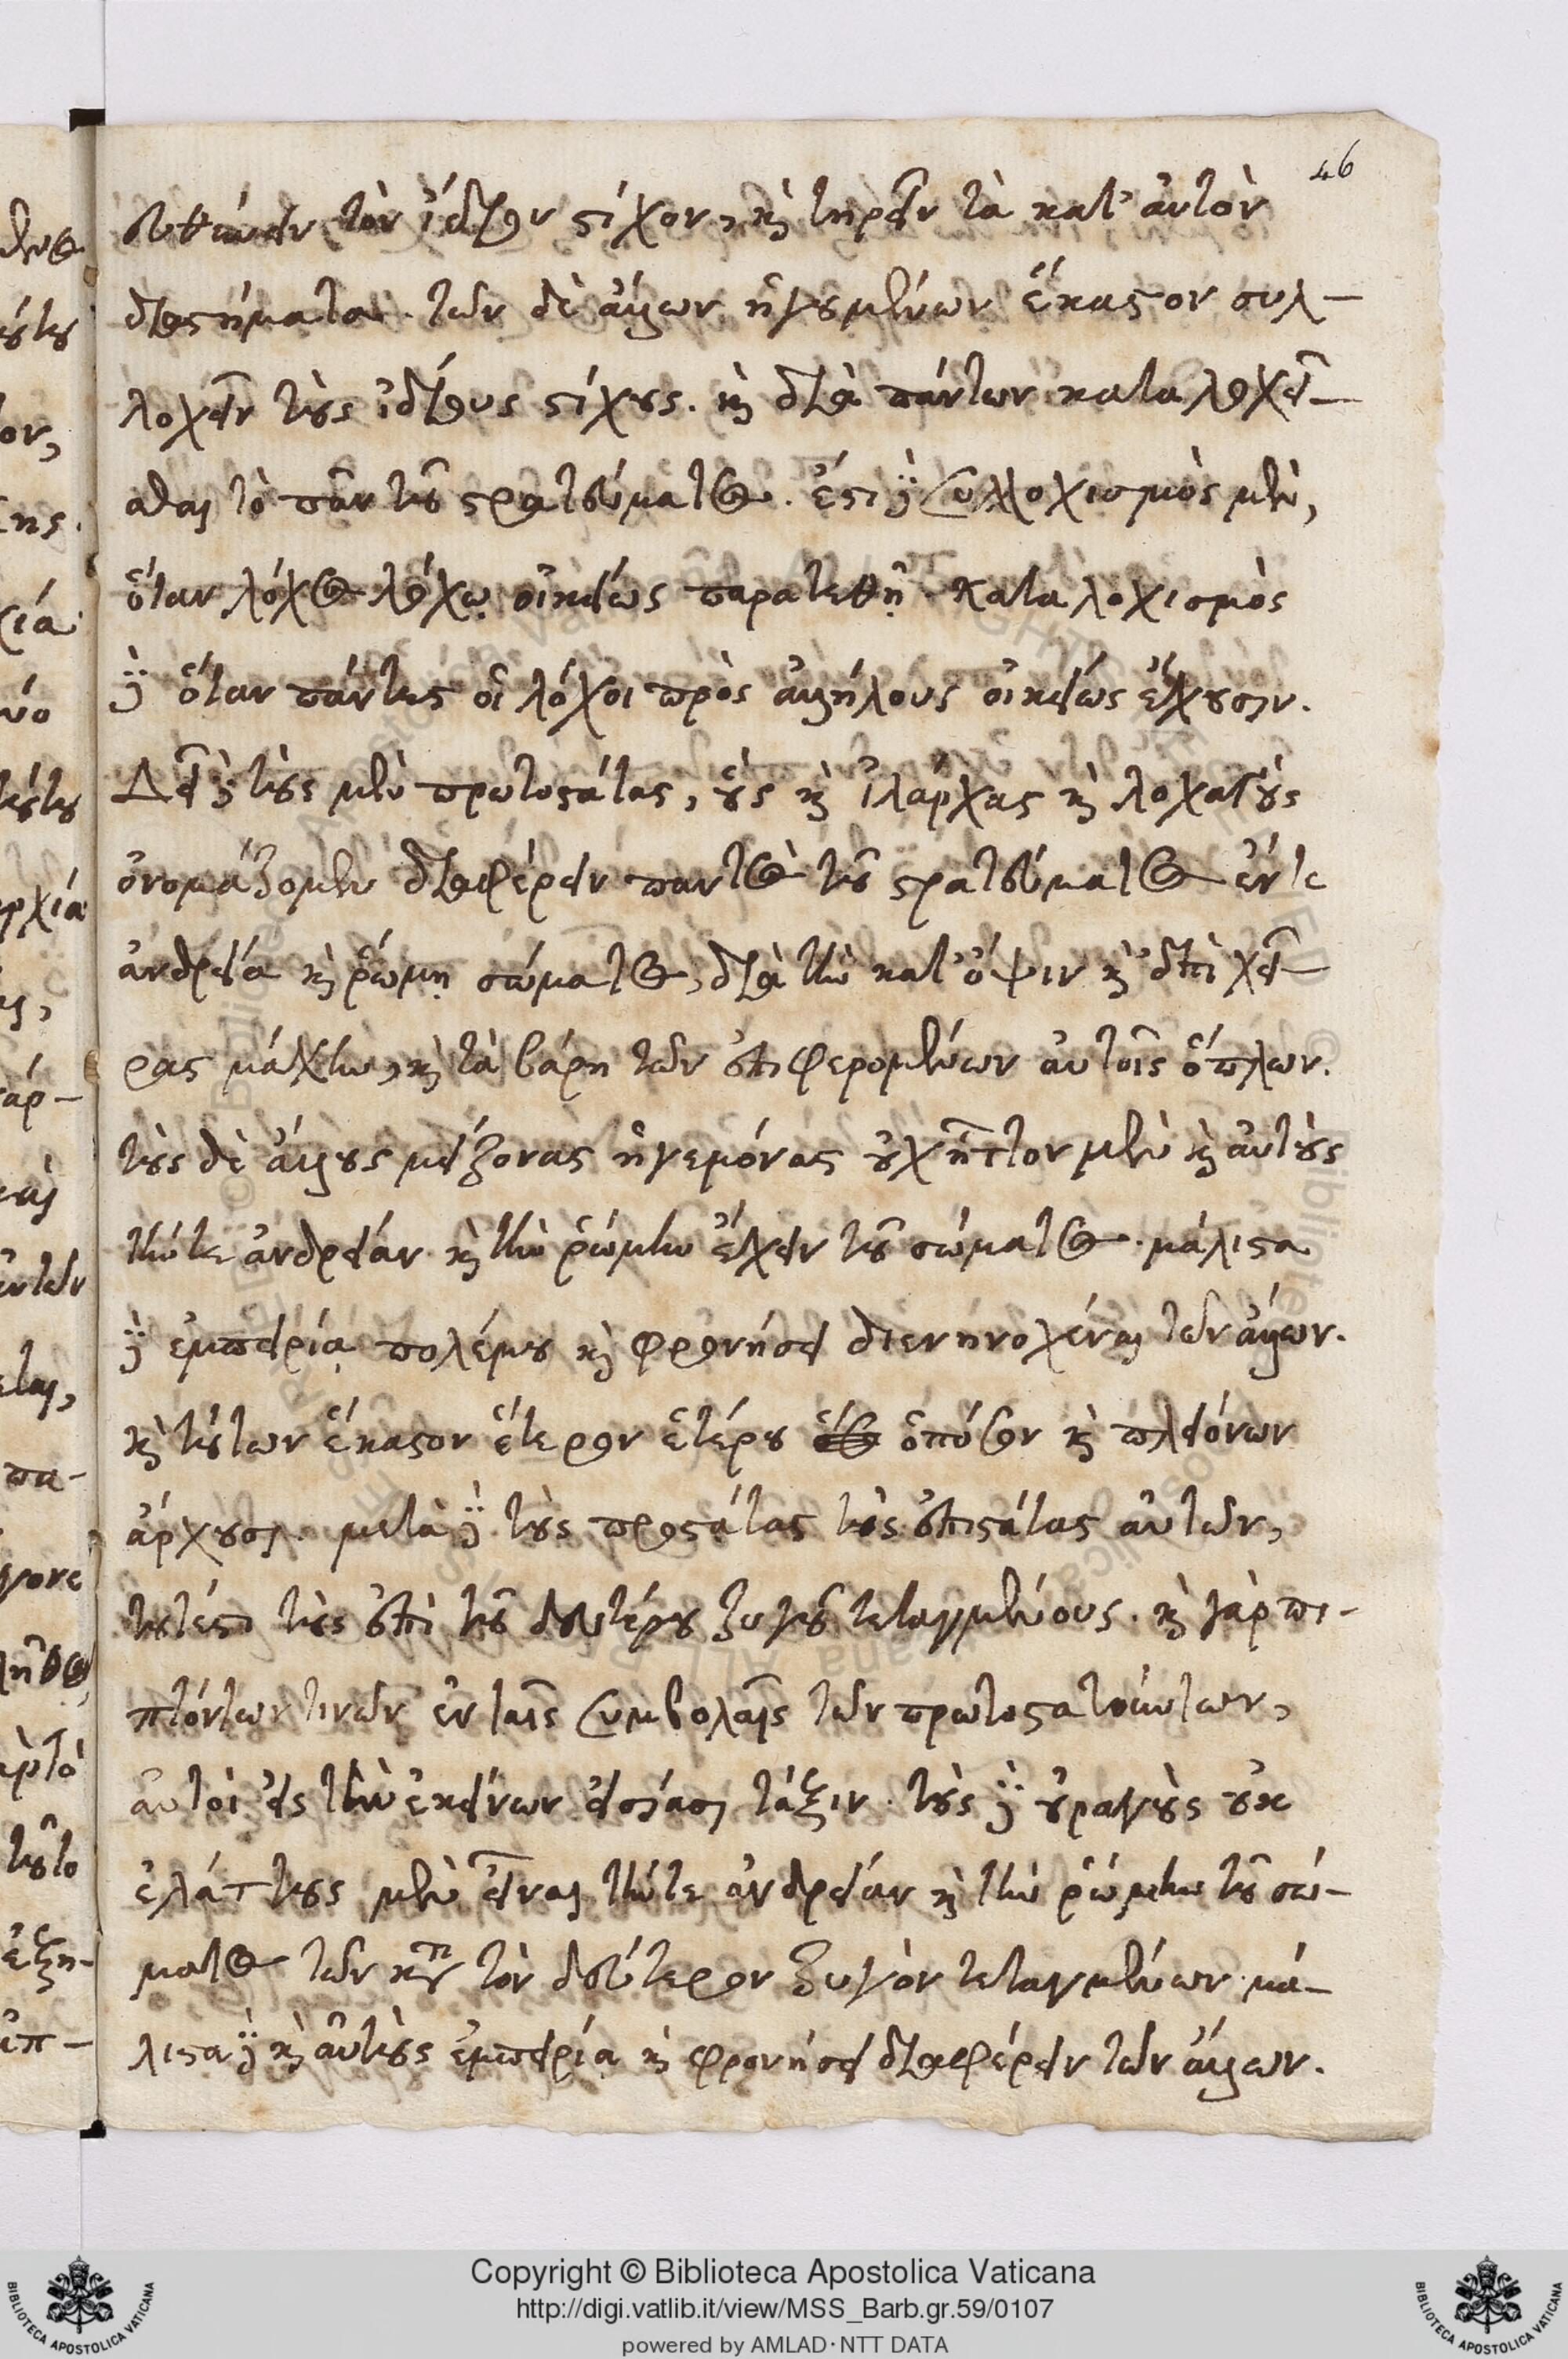 46
διευθύνειν τὸν ἴδιον στίχον, καὶ τηρεῖν τὰ κατ' αὐτὸν
διαστήματα. τῶν δὲ ἄλλων ἡγουμένων ἕκαστον συλ-
λοχεῖν τοὺς ἰδίους στίχους. καὶ διὰ πάντων καταλοχεῖ-
σθαι τὸ πᾶν τοῦ στρατεύματος. ἔστι δὲ συλλοχισμὸς μὲν,
ὅταν λόχος λόχῳ οἰκείως παρατεθῇ. καταλοχισμὸς
δὲ ὅταν πάντες οἱ λόχοι πρὸς ἀλλήλους οἰκείως ἔχουσιν.
Δεῖ δὲ τοὺς μὲν πρωτοστάτας, οὓς καὶ ἰλάρχας καὶ λοχαγοὺς
ὀνομάζομεν διαφέρειν παντὸς τοῦ στρατεύματος ἔν τε
ἀνδρείᾳ καὶ ῥώμῃ σώματος, διὰ τὴν κατ' ὄψιν καὶ ἐπὶ χεῖ-
ρας μάχην, καὶ τὰ βάρη τῶν ἐπιφερομένων αὐτοῖς ὅπλων.
τοὺς δὲ ἄλλους μείζονας ἡγεμόνας οὐχ ἧττον μὲν καὶ αὐτοὺς
τήν τε ἀνδρείαν καὶ τὴν ῥώμην ἔχειν τοῦ σώματος. μάλιστα
δὲ ἐμπειρίᾳ πολέμου καὶ φρονήσει διενηνοχέναι τῶν ἄλλων.
καὶ τούτων ἕκαστον ἕτερον ἑτέρου ὁπόσον καὶ πλειόνων
ἄρχουσι. μετὰ δὲ τοὺς προστάτας τοὺς ἐπιστάτας αὐτῶν,
τουτέστι τοὺς ἐπὶ τοῦ δευτέρου ζυγοῦ τεταγμένους. καὶ γὰρ πι-
πτόντων τινῶν ἐν ταῖς συμβολαῖς τῶν πρωτοστατούντων,
αὐτοὶ εἰς τὴν ἐκείνων εἰσίασι τάξιν. τοὺς δὲ οὐραγοὺς οὐκ
ἐλάττους μὲν εἶναι τήν τε ἀνδρείαν καὶ τὴν ῥώμην τοῦ σώ-
ματος τῶν κατὰ τὸν δεύτερον ζυγὸν τεταγμένων. μά-
λιστα δὲ καὶ αὐτοὺς ἐμπειρίᾳ καὶ φρονήσει διαφέρειν τῶν ἄλλων.
Copyright © Biblioteca Apostolica Vaticana
http://digi.vatlib.it/view/MSS_Barb.gr.59/0107
powered by AMLAD·NTT DATA
BIBLIOTECA APOSTOLICA VATICANA
BIBLIOTECA APOSTOLICA VATICANA